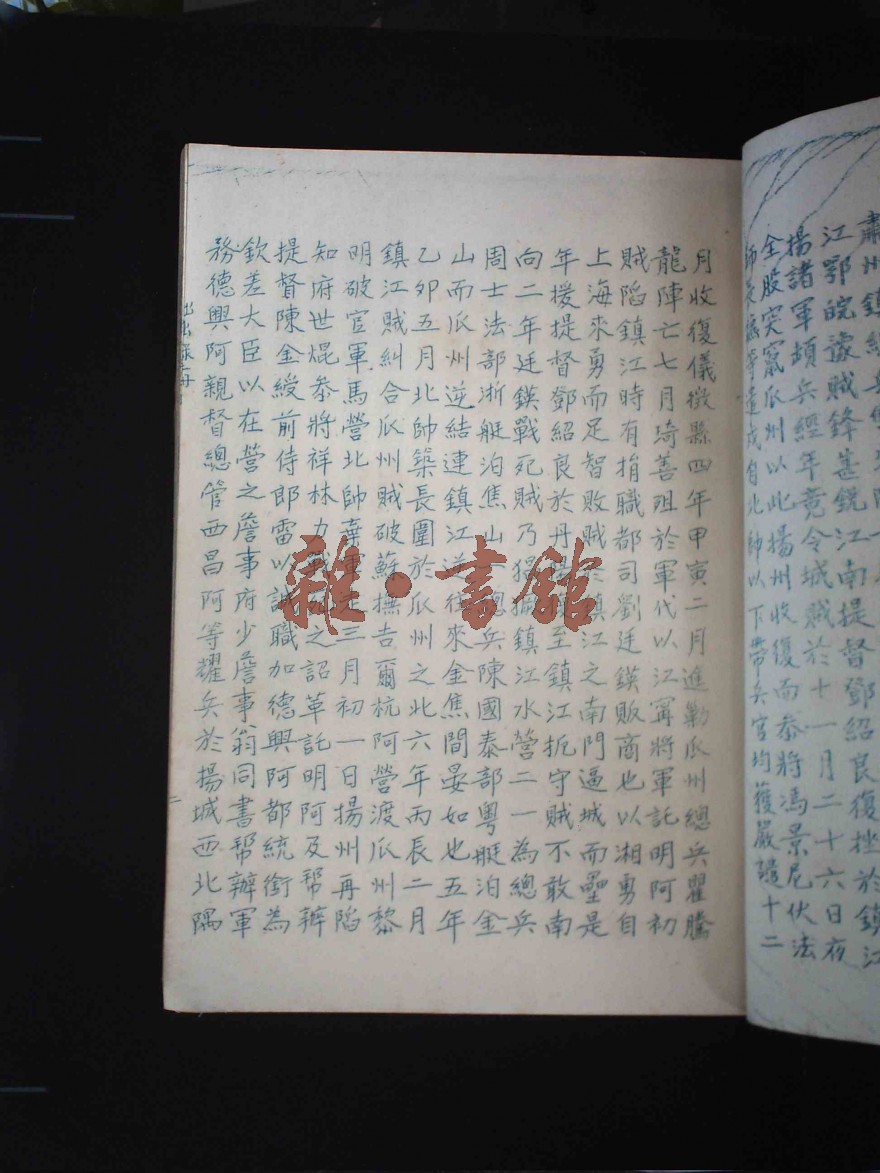 江鄂皖豫賊鋒甚銳江南提督鄧紹良復挫於鎮江
揚諸軍頓兵經年竟令城賊於十一月二十六日夜
全股突竄瓜州以此揚州收復而叅將馮景尼伏法
遣戍自北帥以下帶兵官均獲嚴譴十二
月收復儀徵縣四年甲寅二月進勦瓜州總兵瞿騰
龍陣亡七月琦善殂於軍代以江寗將軍託明阿初
賊陷鎮江時有捐職都司劉廷鍈販商也以湘勇自
上海來勇而足智敗賊鎮江之南門逼城而壘是
年援提督鄧紹良於丹至鎮江扼守賊不敢南
向二年廷鍈戰死賊乃猖獗鎮江水營二一為總兵
周士法部浙艇泊焦山總兵陳國泰部粵艇泊金
山而瓜州逆結連鎮江逆往來金焦間晏如也五年
乙卯五月北帥築長圍於瓜州之北六年丙辰二月
鎮江賊糾合瓜州賊破蘇撫吉爾杭阿營渡瓜州黎
明破官軍馬營北帥棄軍走三月初一日揚州再陷
知府世焜叅將祥林力戰之詔革託明阿及幫辦
提督陳金綬前侍郎雷以諴職加德興阿都統銜為
欽差大臣以在營之詹事府少詹事翁同書幫辦軍
務德興阿親督總管西昌阿等耀兵於揚城西北隅
雜·書館